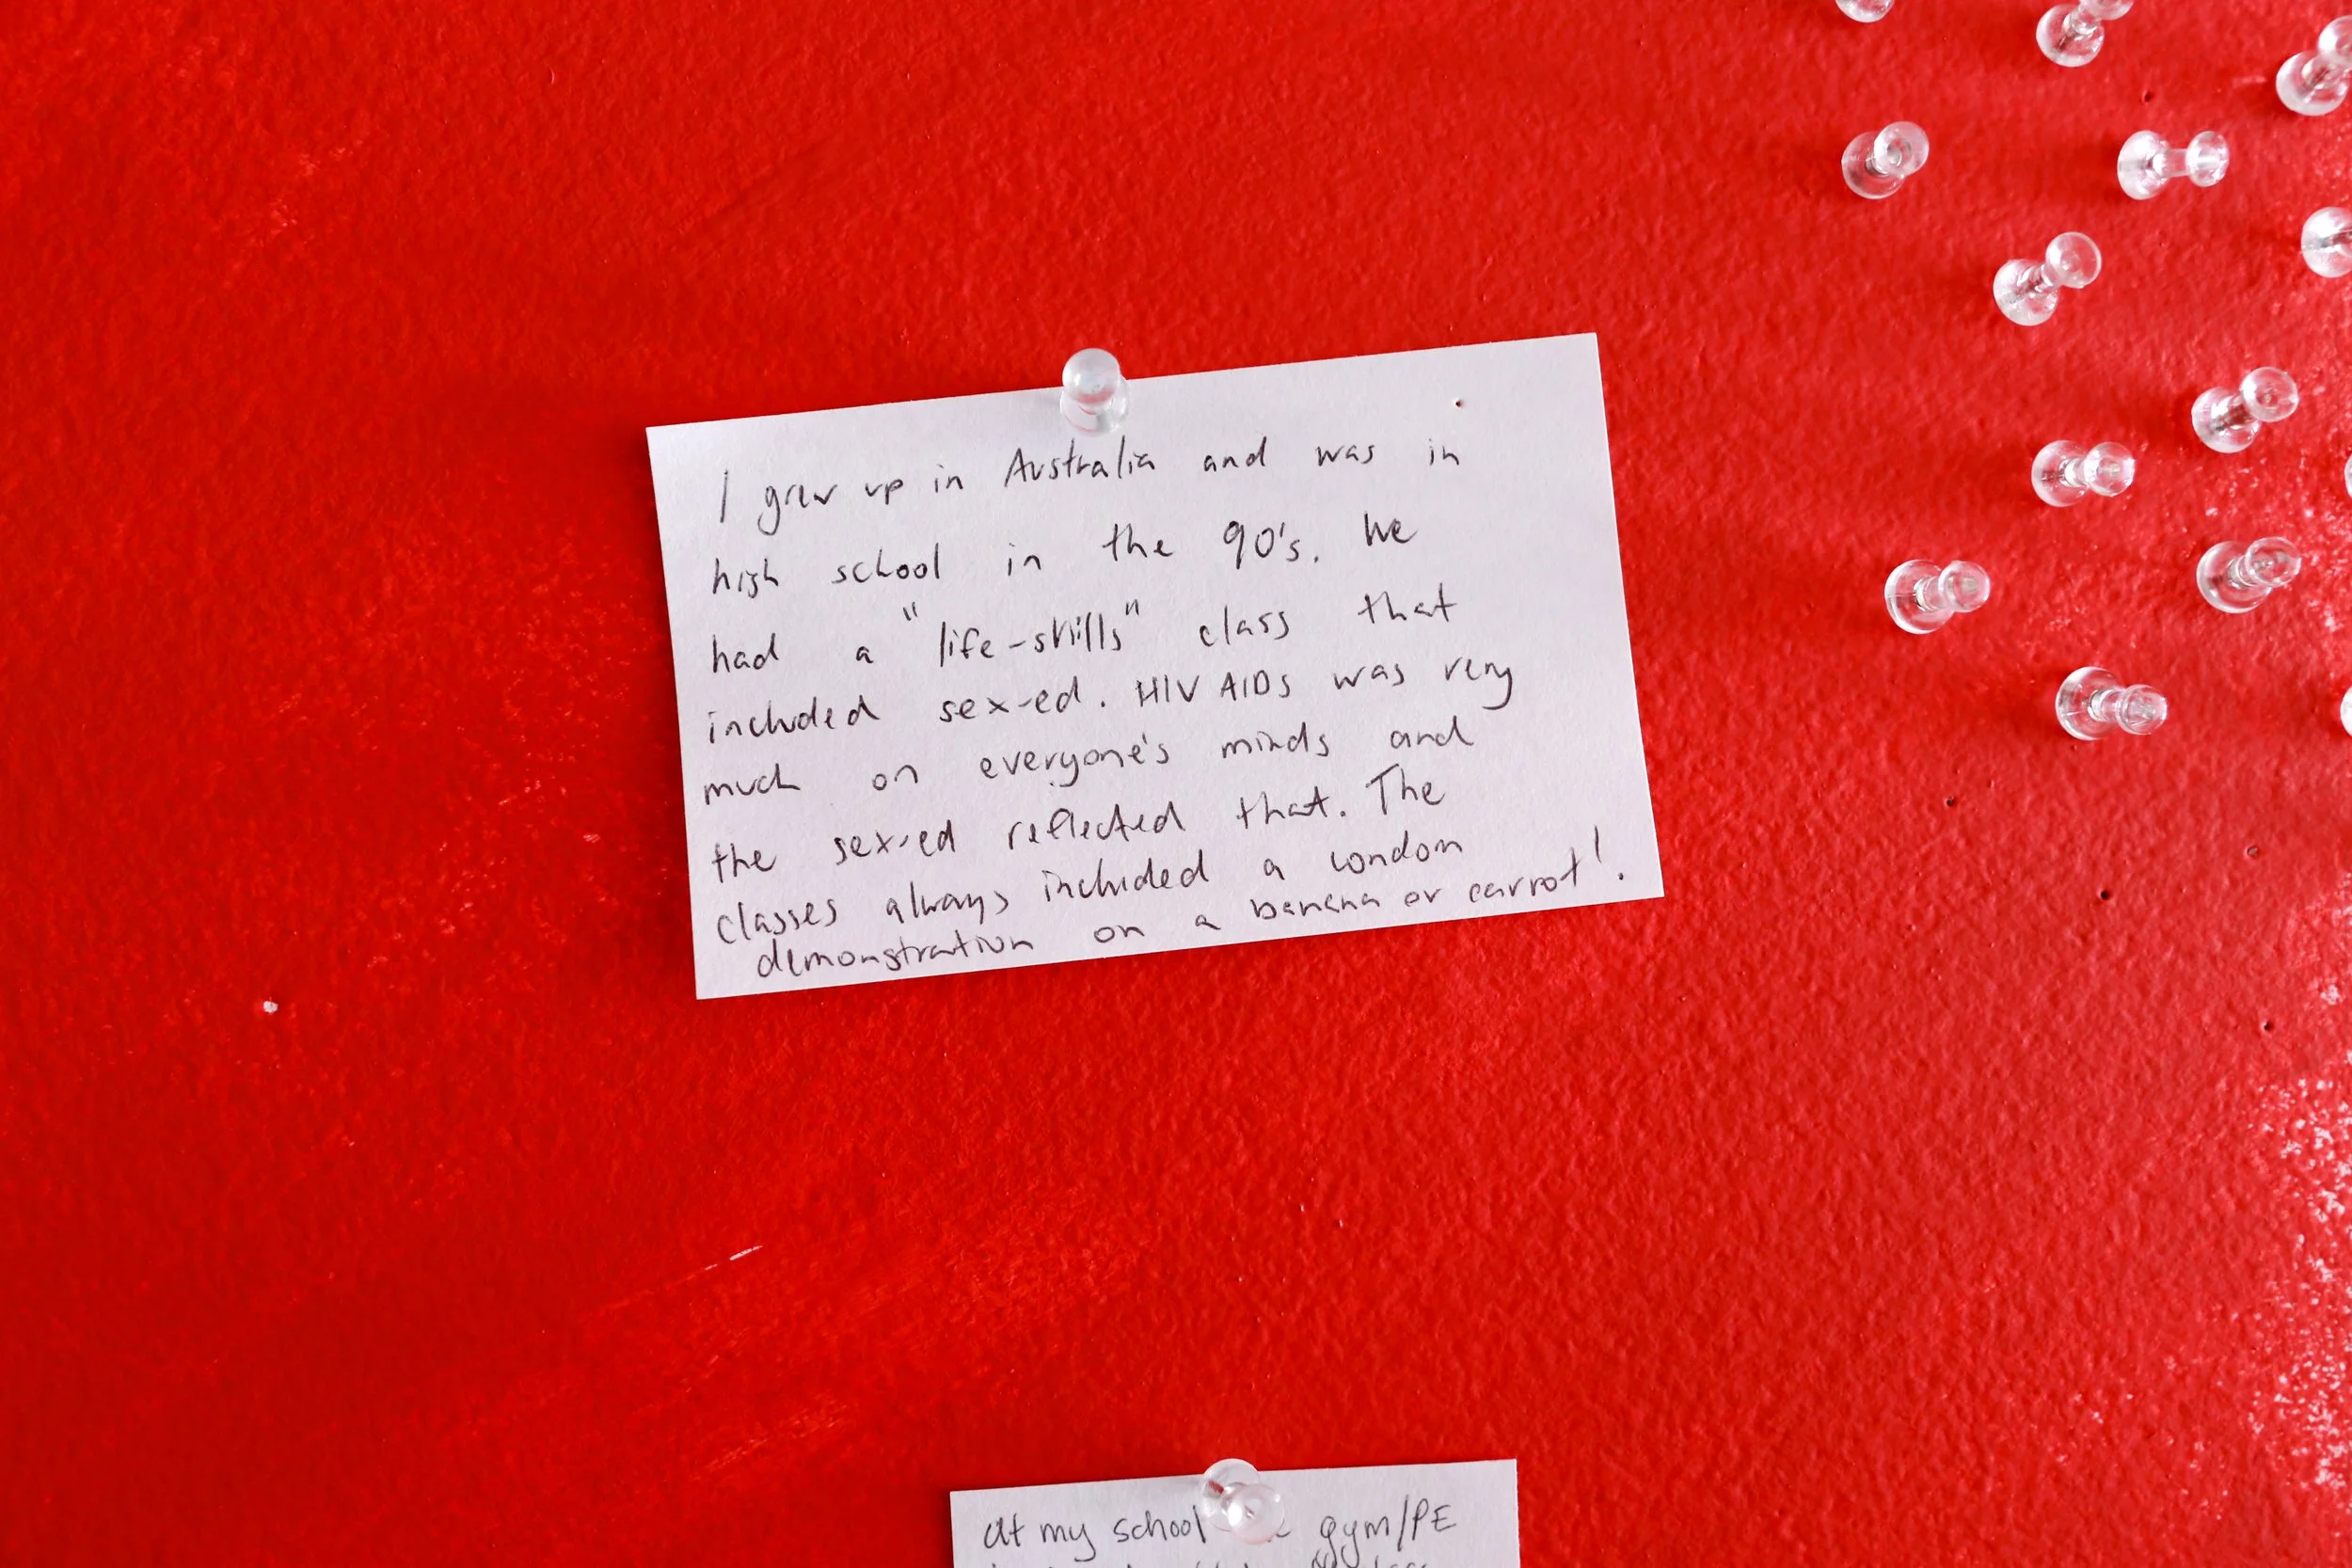 I grew up in Australia and was in
high school in the 90's. We
had a "life-skills" class that
included sex-ed. HIV AIDs was very
much on everyone's minds and
the sex-ed reflected that. The
classes always included a condom
demonstration on a banana or carrot!
at my school gym/PE